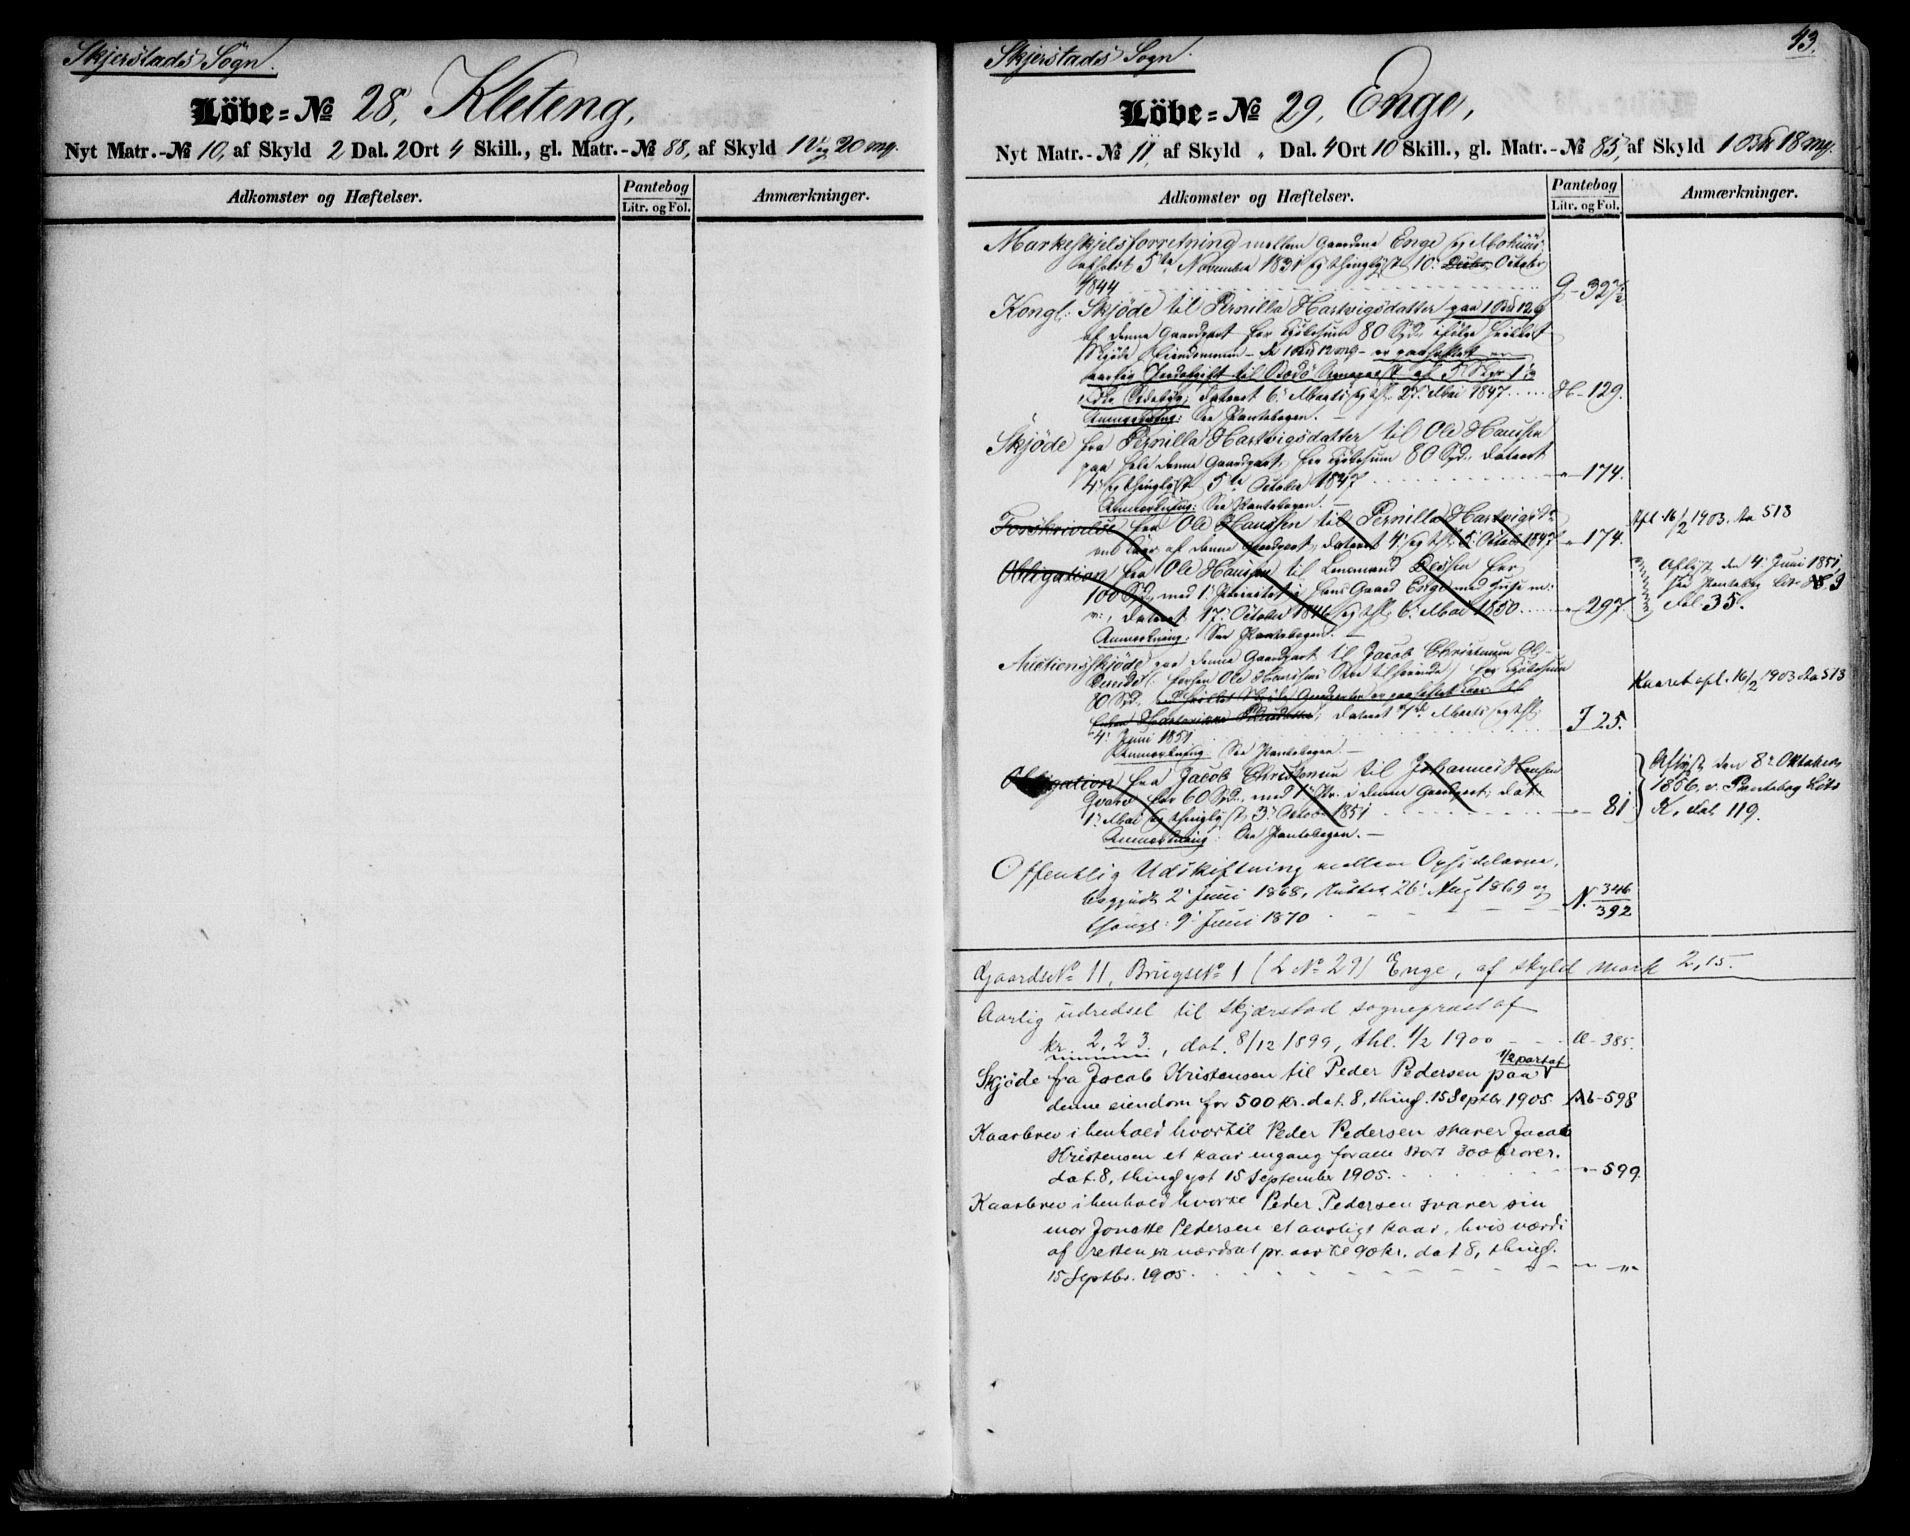 Skjerstads Sogn.
Löbe=No 28, Kleteng,
Nyt Matr.-No 10, af Skyld 2 Dal. 2 Ort 4 Skill., gl. Matr.-No 88, af Skyld 1 V 20 mg.
Adkomster og Hæftelser.
Pantebog
Litr. og Fol.
Anmærkninger.
43.
Skjerstads Sogn.
Löbe=No 29, Enge,
Nyt Matr.-No 11, af Skyld „ Dal. 4 Ort 10 Skill., gl. Matr.-No 85, af Skyld 1 18 mg.
Adkomster og Hæftelser.
Pantebog
Litr. og Fol.
Anmærkninger.
Markeskjelsforretning mellem Gaardene Enge og
afholdt 5te November 1831 og thinglyst 10. October
1844 G - 327
Kongl: Skjöde til Pernilla Hartvigsdatter paa
af denne Gaardpart for Kjöbesum 80 Spd. ifölge hvilket
Skjöde Eiendommen - er paaheftet en
aarlig Jordafgift til Bodö Sognepræst af
dateret 6. Marts og thl. 27. Mai 1847 H - 129.
Anmærkning: See Pantebogen. -
Skjöde fra Pernilla Hartvigsdatter til Ole Hansen
paa hele denne Gaardpart, for Kjöbesum 80 Spd. dateret
4. og thinglyst 5te October 1847 „ - 174.
Anmærkning: See Pantebogen. -
Forskrivelse fra Ole Hansen til Pernilla Hartvigsdr.
om af denne Gaardpart, dateret 4. og thl. 5. October 1847 „ - 174.
Afl. 16/2 1903. Aa 513
Obligation fra Ole Hansen til Lensmand Jessen for
100 Spd. med 1. Prioritet i hans Gaard Enge med Huse m.
v., dateret 17. October og thl. 6. Mai 1850 „ - 297.
Anmærkning: See Pantebogen. -
Aflyst den 4. Juni 1851,
see Pantebog Litr.
Fol. 35.
Auctionsskjöde paa denne Gaardpart til Jacob Christensen
forhen Ole Hansens tilhörende for Kjöbesum
80 Spd.
dateret 7de Marts og thl.
4. Juni 1851 J 25.
Anmærkning: See Pantebogen. -
Kaaret afl. 16/2 1903 Aa 513
Obligation fra Jacob Christensen til Johannes Hansen
for 60 Spd. med 1. Pr. i denne Gaardpart; dat.
1. Mai og thinglyst 3. October 1851 „ - 81
Anmærkning: See Pantebogen. -
Aflyst den 8. Oktober
1856, v. Pantebog Litr
K, fol. 119.
Offentlig Udskiftning mellem Opsidderne,
begyndt 2. Juni 1868, sluttet 26. Aug 1869 og
thingl: 9. Juni 1870 N. 346/392
Gaards No 11, Brugs No 1 (L No 29) Enge, af skyld mark 2,15.
Aarlig udredsel til skjærstad sognepræst af
kr. 2,23, dat. 8/12 1899, thl. 1/2 1900 - - - - 385.
Skjöde fra Jacob Kristensen til Peder Pedersen paa 1/2 part af
denne eiendom for 500 kr. dat. 8, thingl. 15 Septbr. 1905. Ab - 598
Kaarbrev i henhold hvortil Peder Pedersen svarer Jacob
Kristensen et kaar engang for alle stort 300 kroner.
dat. 8, thinglyst 15 September 1905. „ - 599.
Kaarbrev i henhold hvortil Peder Pedersen svarer sin
mor Jonette Pedersen et aarligt kaar, hvis værdi
af retten er værdsat pr. aar til 90 kr. dat 8, thingl.
15 Septbr. 1905. „ - „